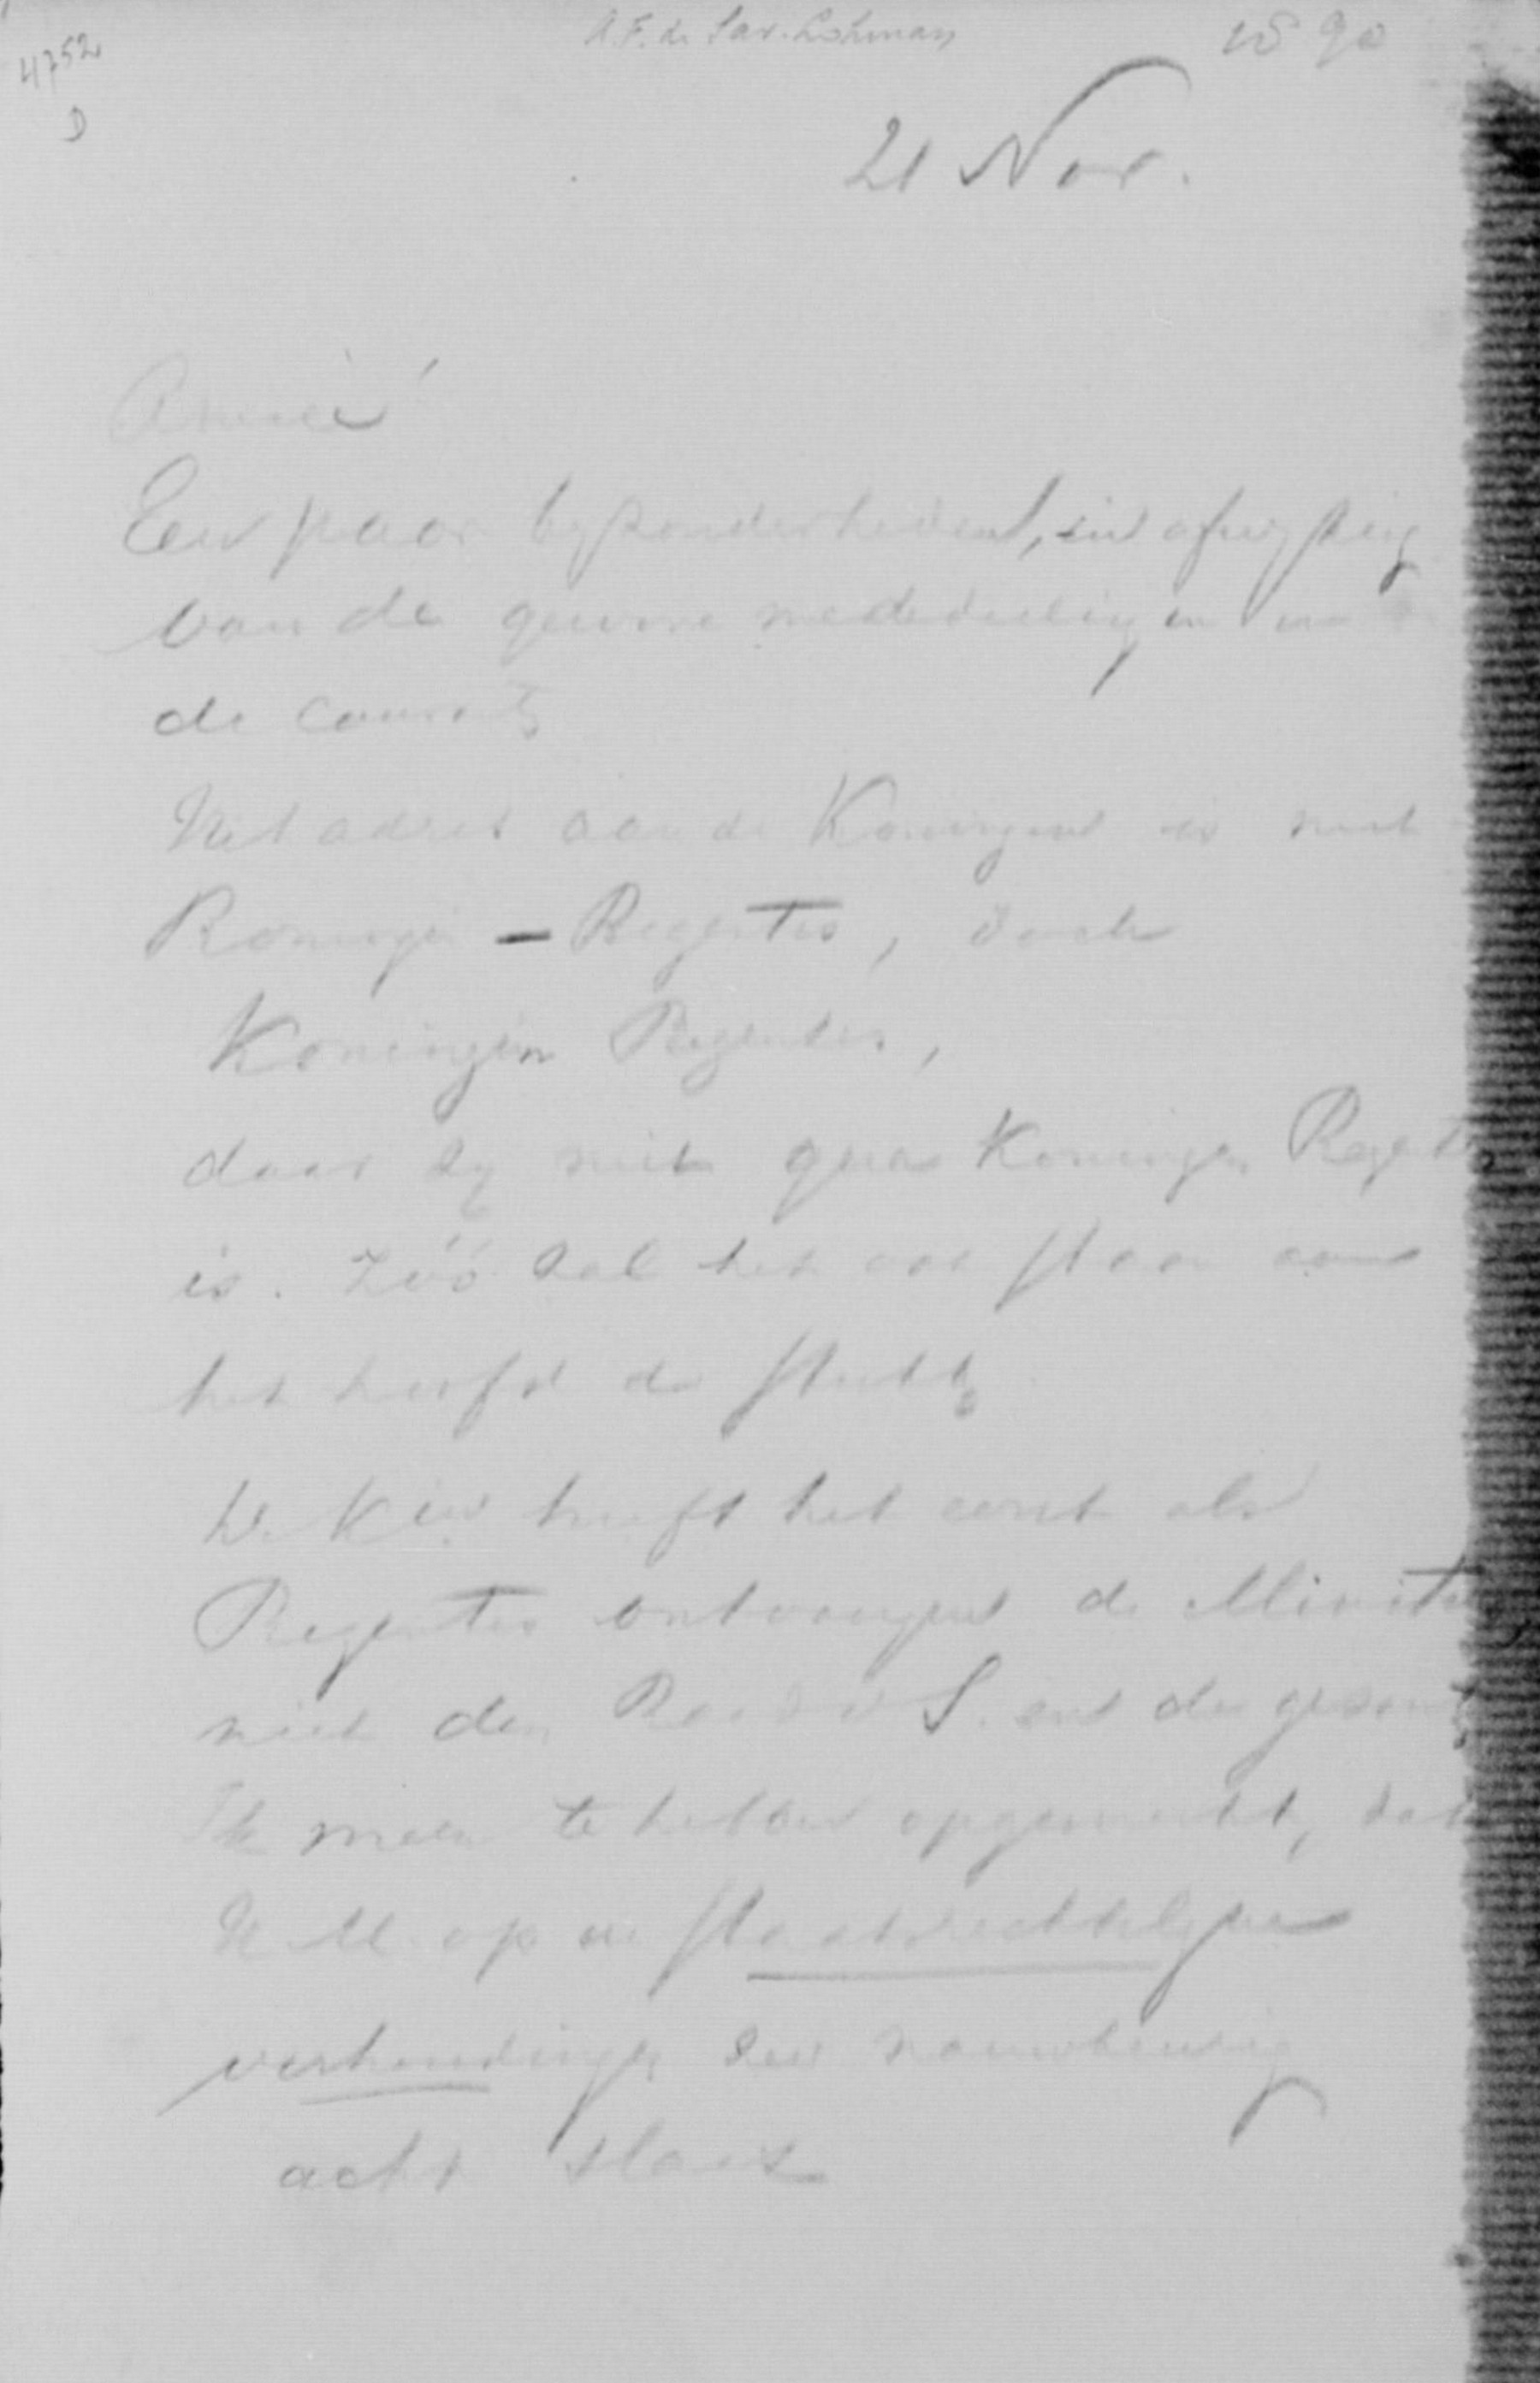 4752
D
A.F. de Sav. Lohman
1890
21 Nov.
Amice!
Een paar byzonderheden, ter afwyking
van de gewone mededeelingen in
de courant
Het adres aan de Koningin is niet
Koningin — Regentes, doch
Koningin Regentes,
daar zy niet qua Koningin Regentes
is. Zóó zal het ook staan aan
het hoofd der stukken
De K.in heeft het eerst als
Regentes ontvangen de Ministers
niet den Raad v S. en de gezanten
Ik meen te hebben opgemerkt, dat
H.M. op de staatsrechtelyke
verhoudingen zeer nauwkeurig
acht slaat